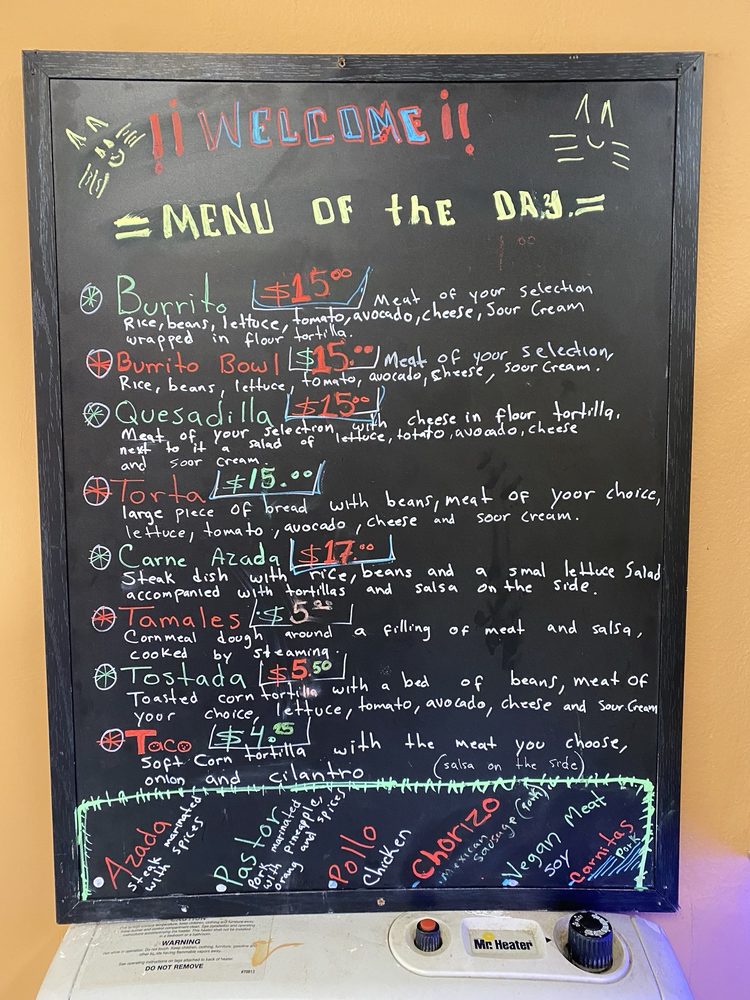 ¡¡ WELCOME !!
= MENU OF the DAY. =
Burrito $15.00 Meat of your selection
Rice, beans, lettuce, tomato, avocado, cheese, Sour Cream
wrapped in flour tortilla.
Burrito Bowl $15.00 Meat of your selection,
Rice, beans, lettuce, tomato, avocado, cheese, sour cream.
Quesadilla $15.00
Meat of your selection with cheese in flour tortilla.
next to it a salad of lettuce, totato, avocado, cheese
and sour cream.
Torta $15.00
large piece of bread with beans, meat of your choice,
lettuce, tomato, avocado, cheese and sour cream.
Carne Azada $17.00
Steak dish with rice, beans and a smal lettuce Salad
accompanied with tortillas and salsa on the side.
Tamales $5.00
Cornmeal dough around a filling of meat and salsa,
cooked by steaming.
Tostada $5.50
Toasted corn tortilla with a bed of beans, meat of
your choice, lettuce, tomato, avocado, cheese and sour cream
Taco $4.25
Soft Corn tortilla with the meat you choose,
onion and cilantro (salsa on the side)
Azada
steak marinated
with spices
Pastor
Pork marinated
with pineapple,
orang and spices
Pollo
Chicken
Chorizo
Mexican
Sausage (Pork)
Vegan Meat
SOY
Carnitas
Pork
CAUTION
WARNING
DO NOT REMOVE
Mr. Heater